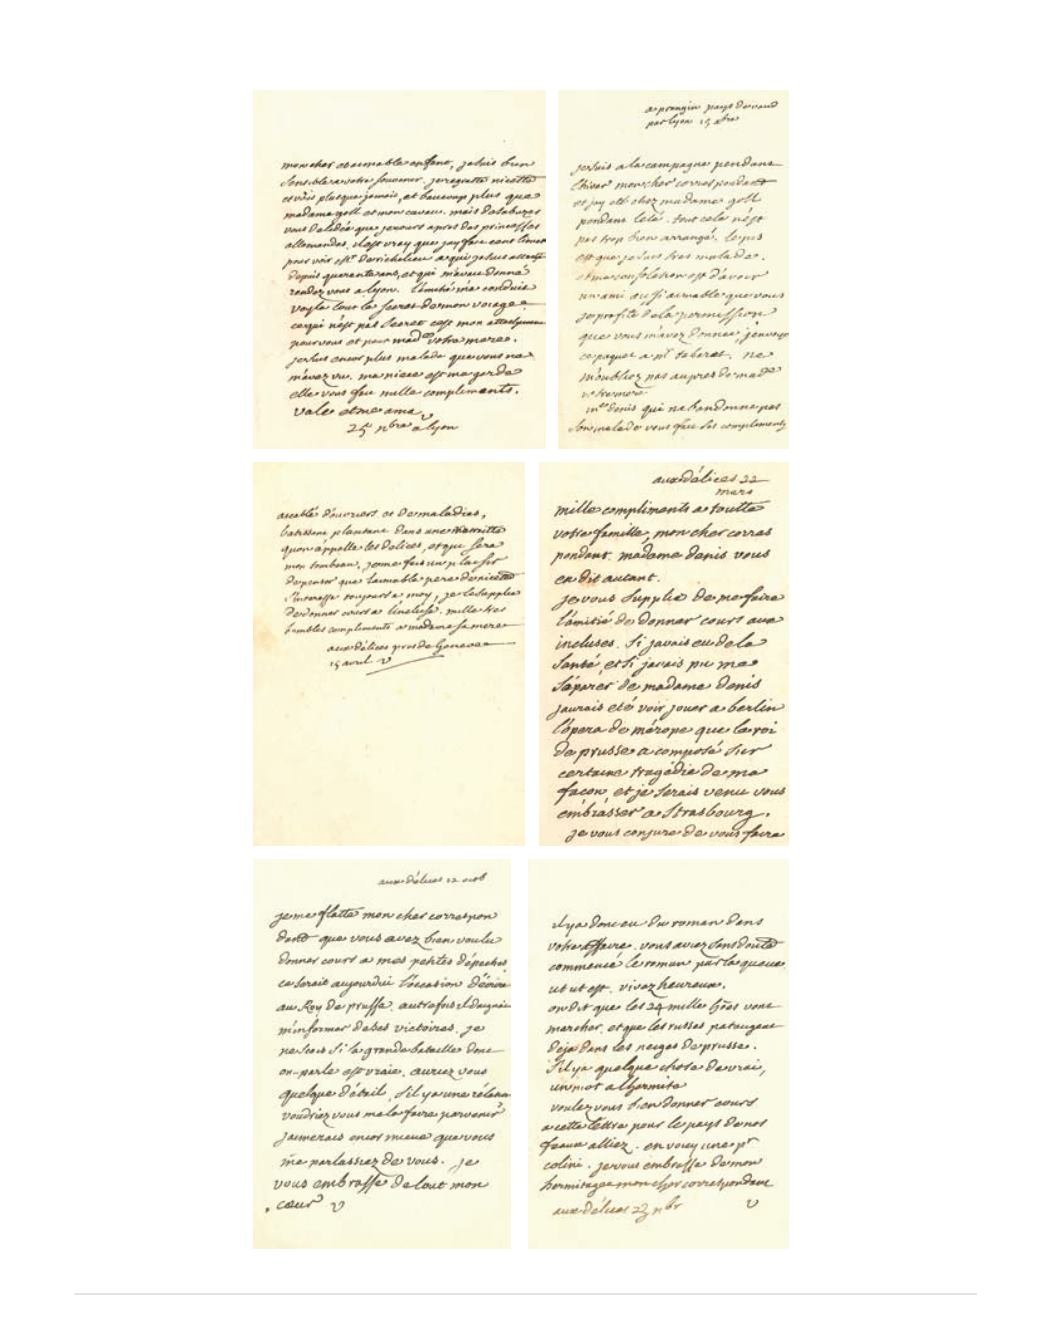 mon cher et aimable enfant, je suis bien
sensible a votre souvenir. je regrette nicette
et vois plus que jamais, et beaucoup plus que
madame goll et mon caveau. mais desabusez
vous de lidée que je cours apres des princesses
allemandes. il est vray que jay fait cent lieues
pour voir mr. de richelieu a qui je suis attaché
depuis quarante ans, et qui m'avait donné
rendez vous a lyon. l'amitié m'a conduit
voyla tout le secret de mon voyage
ce qui n'est pas secret cest mon attachement
pour vous et pour made votre mere.
je suis encor plus malade que vous ne
m'avez vu. ma niece est ma garde
elle vous fait mille compliments.
vale et me ama
v
25 nbre a lyon
a prangin pays de vaud
par lyon 15 xbre
je suis a la campagne pendant
lhiver mon cher correspondant
et jay eté chez madame goll
pendant lété. tout cela n'est
pas trop bien arrangé. le pis
est que je suis tres malade.
et ma consolation est d'avoir
un ami aussi aimable que vous
je profite de la permission
que vous m'avez donnée, j'envoye
ce paquet a mr tabaret. ne
m'oubliez pas aupres de made
votre mere
me denis qui n'abandonne pas
son malade vous fait ses compliments
accablé d'ouvriers et de maladies,
batissant plantant dans une retraitte
qu'on appelle les delices, et qui sera
mon tombeau, je me fais un plaisir
de penser que l'aimable pere de nicette
s'interesse toujours a moy, je le supplie
de donner cours a l'incluse. mille tres
humbles compliments a madame sa mere
aux délices pres de Geneve
15 avril v
aux délices 22
mars
mille compliments a toutte
votre famille, mon cher corres
pondant. madame denis vous
en dit autant.
je vous supplie de me faire
l'amitié de donner cours aux
incluses. Si javais eu de la
santé, et si javais pu me
séparer de madame denis
jaurais eté voir jouer a berlin
l'opera de mérope que le roi
de prusse a composé sur
certaine tragédie de ma
façon, et je serais venu vous
embrasser a Strasbourg.
je vous conjure de vous faire
aux délices 12 octob
je me flatte mon cher correspon
dant que vous avez bien voulu
donner cours a mes petites dépeches.
ce serait aujourdui l'occasion d'écrire
au Roy de prusse. autrefois il daignait
m'informer de ses victoires. je
ne scais si la grande bataille dont
on parle est vraie. auriez vous
quelque détail, s'il y a une rélation
voudriez vous me la faire parvenir
jaimerais encor mieux que vous
me parlassiez de vous. je
vous embrasse de tout mon
cœur v
il y a donc eu du roman dans
votre affaire. vous aviez sans doute
commencé le roman par la queue
ut ut est. vivez heureux.
on dit que les 24 mille hommes vont
marcher, et que les russes pataugent
deja dans les neiges de prusse.
s'il y a quelque chose de vrai,
un mot a lhermite
voulez vous bien donner cours
a cette lettre pour le pays de nos
feaux alliez. en voicy une pr
colini. je vous embrasse de mon
hermitage mon cher correspondant
aux délices 23 nbr v